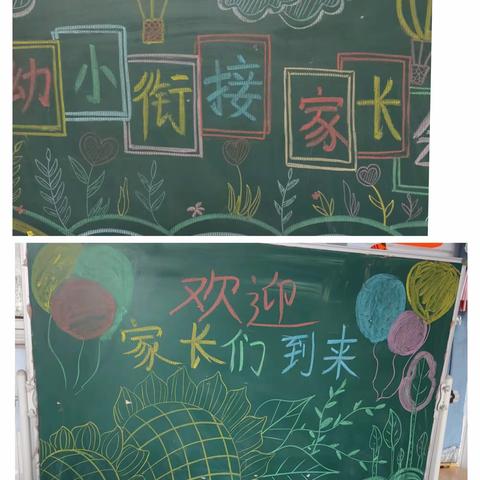 幼小衔接家长
欢迎
家长们到来